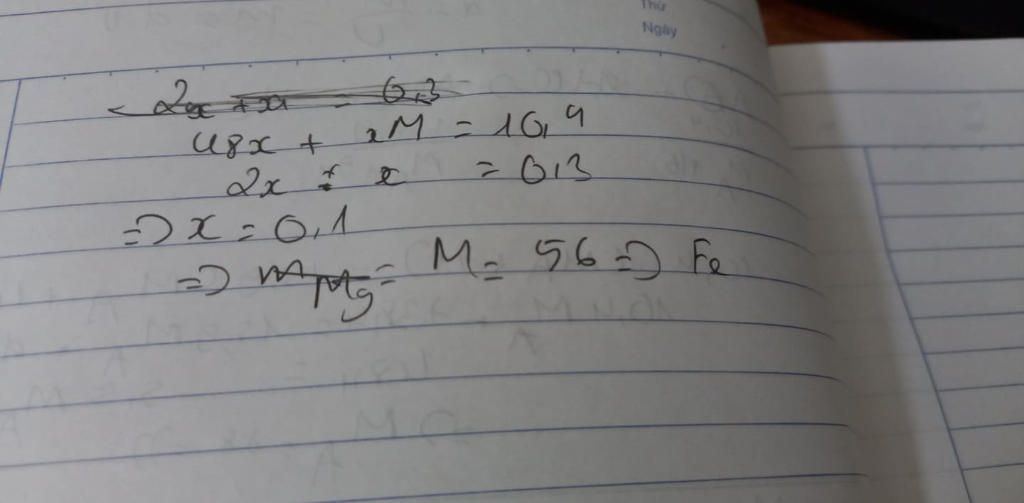 Thứ
Ngày
2x + x = 0,3
48x + xM = 10,4
2x + x = 0,3
=> x = 0,1
=> m Mg = M = 56 => Fe